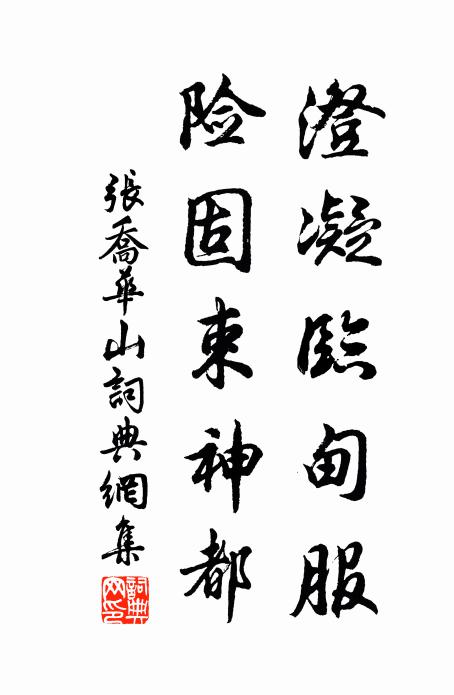 澄凝臨甸服
险固束神都
張喬華山詞典網集
詞典
网印